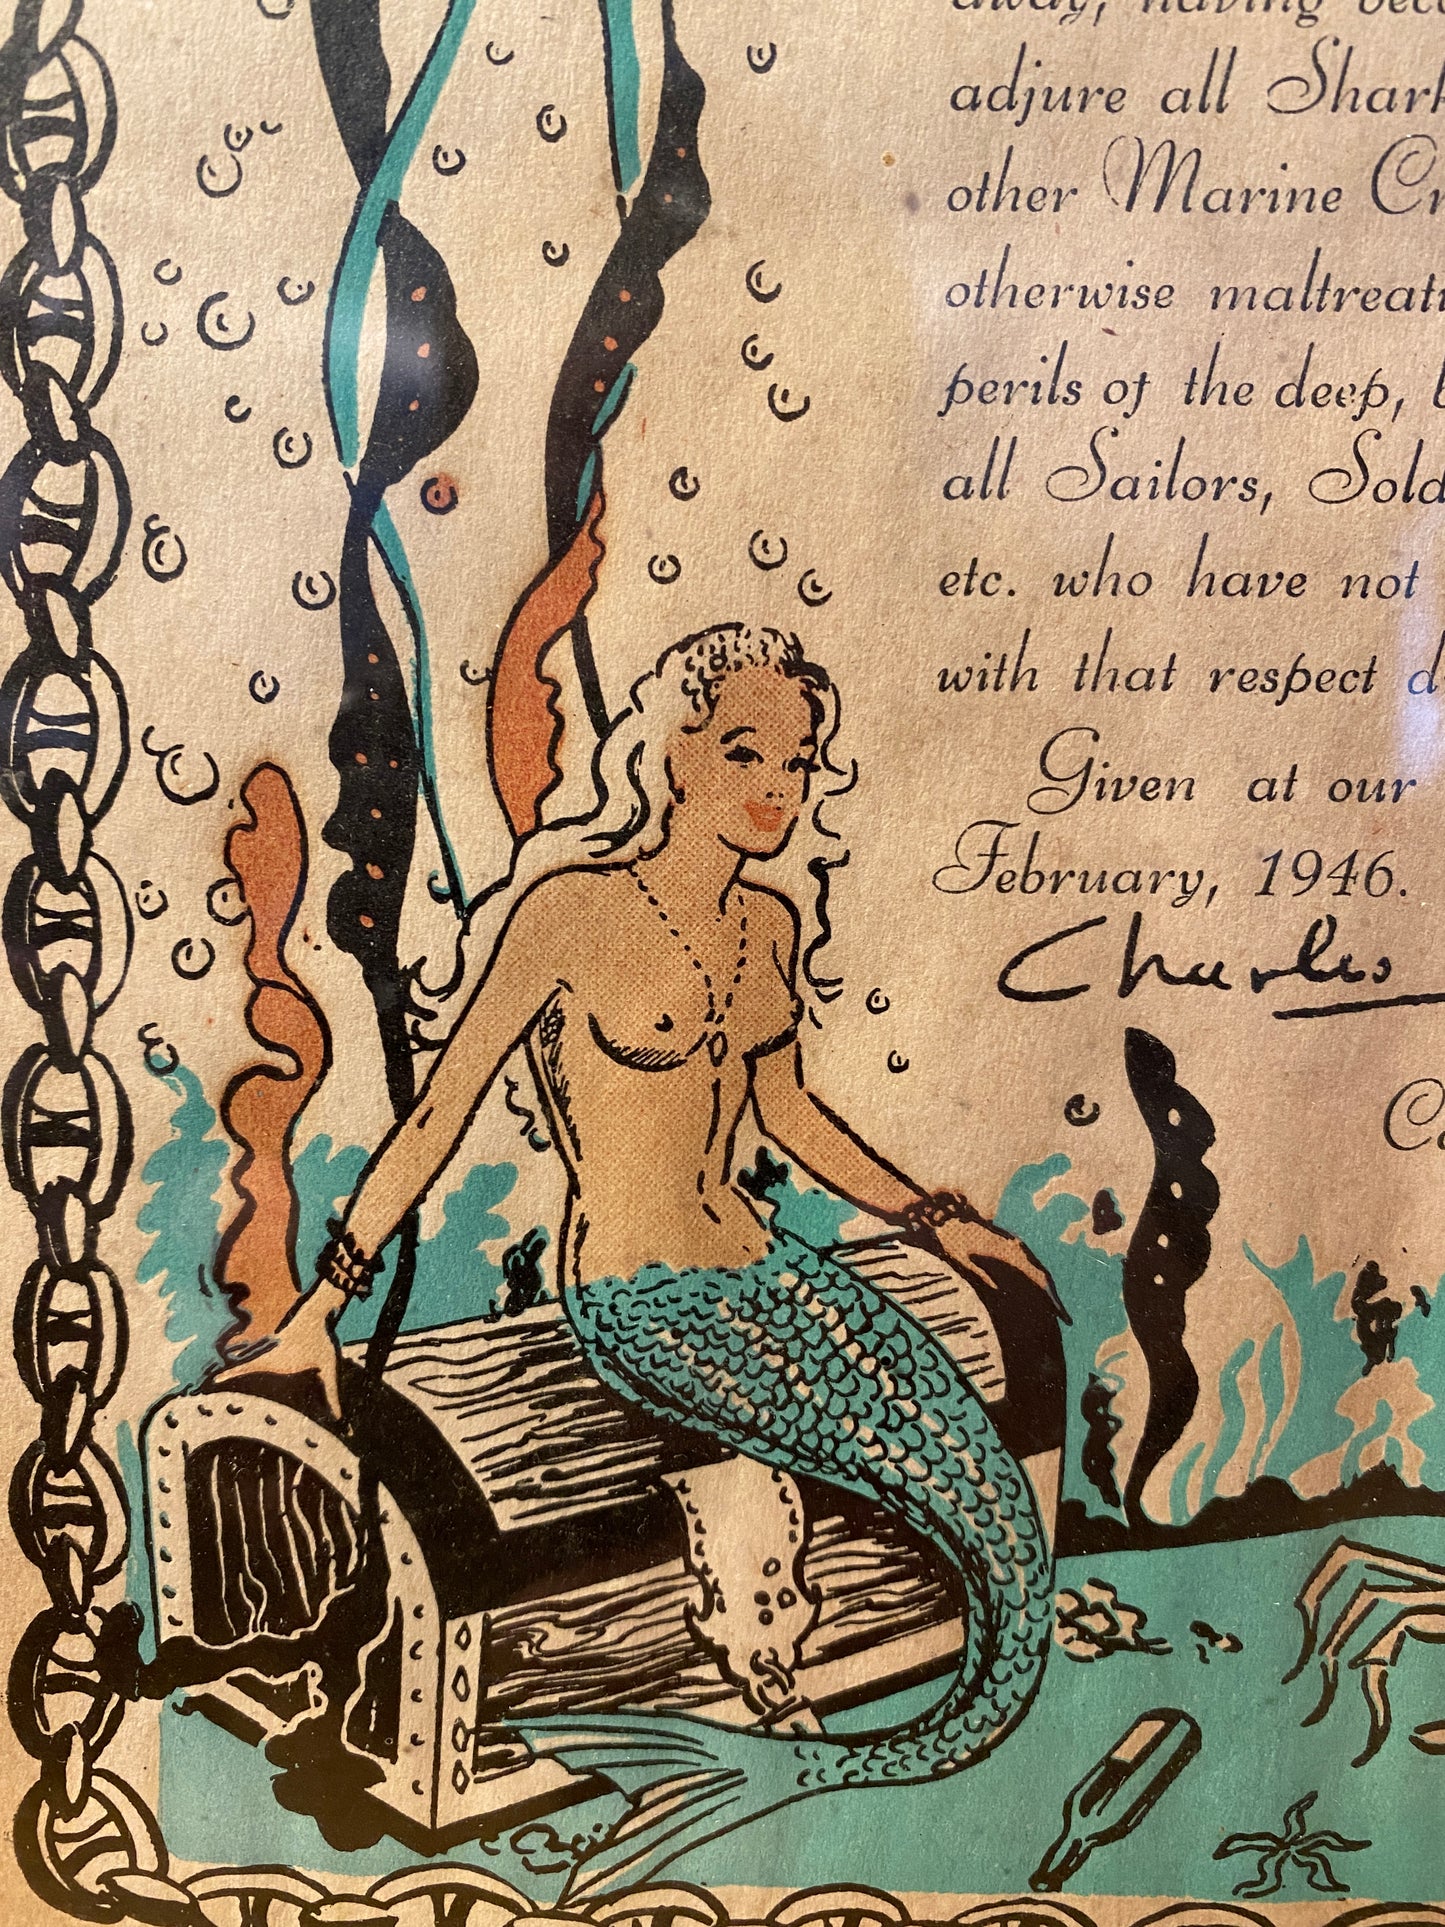 away, having
adjure all
other Marine
otherwise
perils of the deep,
all Sailors,
etc. who have not
with that respect
Given at our
February, 1946.
Charles